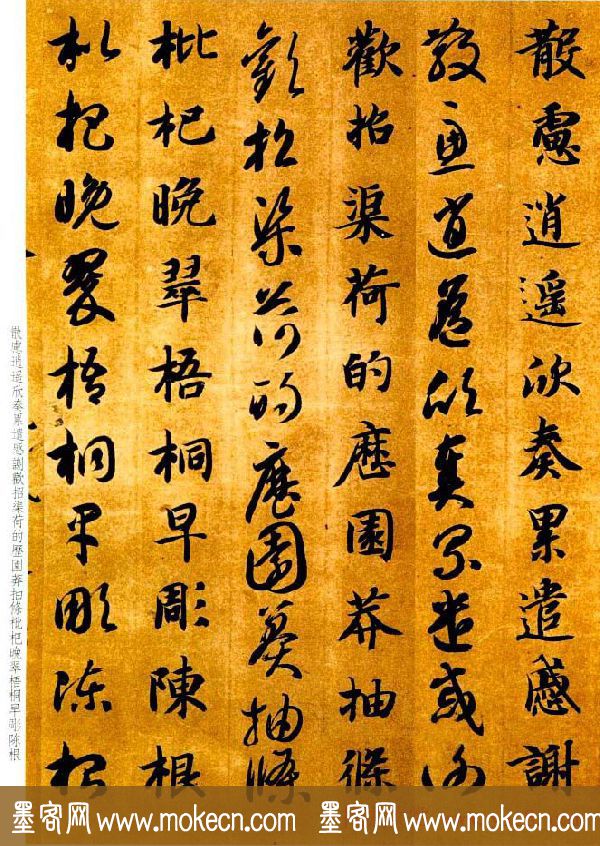 散慮逍遥欣奏累遣慼謝
散慮逍遥欣奏累遣慼謝
歡招渠荷的歷園莽抽條
歡招渠荷的歷園莽抽條
枇杷晚翠梧桐早彫陳根
枇杷晚翠梧桐早彫陳根
散慮逍遥欣奏累遣感謝歡招渠荷的歷園莽抽條枇杷晚翠梧桐早彫陳根
墨客网 www.mokecn.com 墨客网 www.mokecn.com